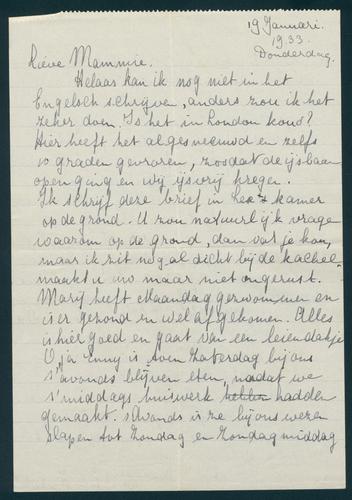 19 Januari.
1933.
Donderdag.
Lieve Mammie.
Helaas kan ik nog niet in het
Engelsch schrijven, anders zou ik het
zeker doen. Is het in London koud?
Hier heeft het al gesneeuwd en zelfs
10 graden gevroren, zoodat de ijsbaan
open ging en wij ijsvrij kregen.
Ik schrijf deze brief in kamer
op de grond. U zou natuurlijk vragen
waarom op de grond, dan vat je kou,
maar ik zit nog al dicht bij de kachel
maakt u uw maar niet ongerust.
Marij heeft Maandag gezwommen en
is er gezond en wel afgekomen. Alles
is hier goed en gaat van een leiendakje
O, ja Enny is toen Zaterdag bij ons
s'avonds blijven eten, nadat we
s'middags huiswerk hadden
gemaakt. s'Avonds is ze bij ons wezen
slapen tot Zondag en Zondagmiddag